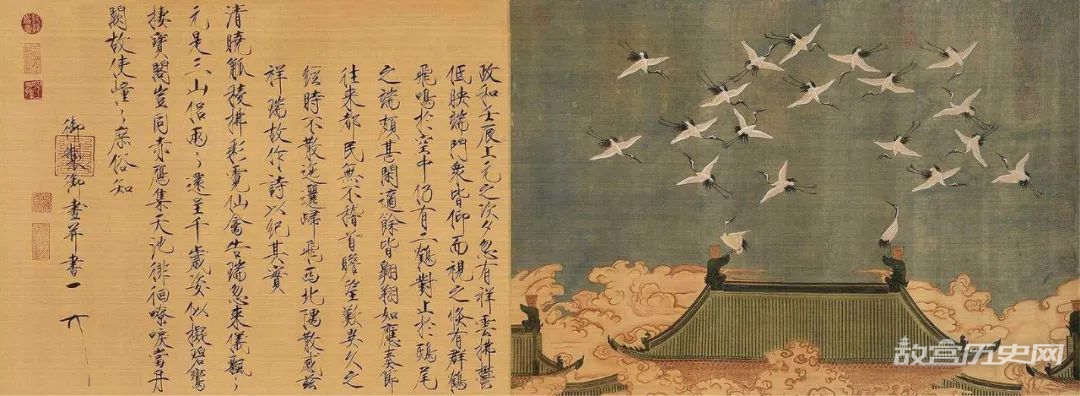 政和壬辰上元之次夕忽有祥雲拂鬱
低映端門眾皆仰而視之倏有群鶴
飛鳴於空中仍有二鶴對止於鴟尾
之端頗甚閑適餘皆翱翔如應奏節
往來都民無不稽首瞻望歎異久之
經時不散迤邐歸飛西北隅散感茲
祥瑞故作詩以紀其實
清曉觚稜拂彩霓仙禽告瑞忽來儀飄〻
元是三山侶兩〻還呈千歲姿似擬碧鸞
棲寶閣豈同赤鴈集天池徘徊嘹唳當丹
闕故使憧〻庶俗知
御製御畫并書
故宫历史网